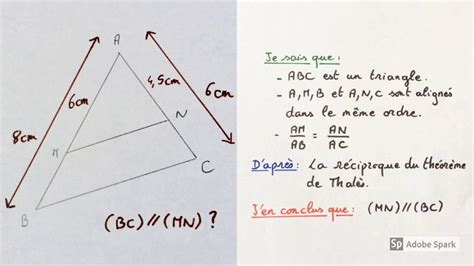 A
8cm
6cm
4,5cm
6cm
N
M
C
B
(BC) // (MN) ?
Je sais que :
- ABC est un triangle.
- A, M, B et A, N, C sont alignés
dans le même ordre.
- AM/AB = AN/AC
D'après : La réciproque du théorème
de Thalès.
J'en conclus que : (MN) // (BC)
Sp Adobe Spark